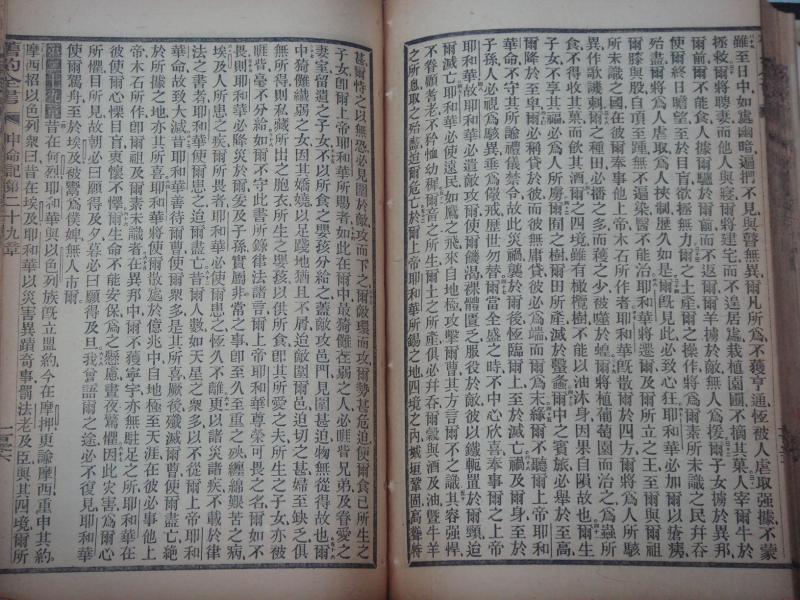 雖至日中如處幽暗遍把不見與瞽無異爾凡所爲不獲亨通恆被人虐取强據不蒙
拯救爾將聘妻而他人與寢爾將建宅而不遑居處栽植園囿不摘其菓人宰爾牛於
爾前爾不能食人據爾驢於爾前而不返爾爾羊擄於敵無人爲援爾子女擄於異邦
使爾終日瞻望至於目盲欲拯無力爾之土產爾之操作將爲爾素所未識之民幷吞
殆盡爾將爲人虐取爲人挾制歷久如是爾旣見此必致心狂耶和華必加爾以瘡痍
爾膝與股自頂至踵無不遍染醫不能治耶和華將遷爾及爾所立之王至爾與爾祖
所未識之國在彼爾奉事他上帝木石所作者耶和華旣散爾於四方爾將爲人所駭
異作歌譏刺爾之種田必播之多而穫之少被嘬於蝗爾將植葡萄園而治之爲蟲所
食不得收其菓而飲其酒爾之四境雖有橄欖樹不能以油沐身因果自隕故也爾生
子女不享其福必爲人所虜爾囿之樹爾田所產滅於爾中之賓旅必舉於至高
爾降於至卑爾必稱貸於彼而彼無庸貸爾彼必爲端而爾爲末緣爾不聽爾上帝耶和
華命不守其所諭禮儀禁令故此災禍襲於爾後恆臨爾上至於滅亡禍及爾身至於
子孫人必視爲駭異垂爲儆戒歷世勿替爾當全盛之時不中心欣喜奉事爾之上帝
耶和華故耶和華必遣敵攻爾使爾饑渴裸體匱乏服役於敵彼以鐵軛置於爾頸迫
爾滅亡耶和華必使遠民如鷹之飛來自地極攻擊爾曹其方言爾不之識其容强悍
不眷顧耆老不矜恤幼穉爾畜之所生爾土之所產俱必幷吞爾穀與酒及油暨牛羊
之所息取之殆盡迫爾危亡於爾上帝耶和華所錫之地四境之內城垣鞏固高聳
甚爾恃之以無恐必見圍於敵攻而下之爾敵環而攻爾勢甚危迫使爾食己所生之
子女卽爾上帝耶和華所賜者如此在爾中最猗儺荏弱之人必睚眥兄弟及眷愛之
妻室留遺之子女不以所食之嬰孩分給之蓋敵攻邑門見圍甚迫物無從得故也爾
中猗儺纖弱之女因其嬌嬈以足踐地猶且不屑迫敵圍爾邑迫切之甚婦至缺乏俱
無所得則私藏所出之胞衣所生之嬰孩以供所食卽其所愛之夫所生之子女亦彼
睚眥毫不分給如爾不守此書所錄律法諸言爾上帝耶和華尊榮可畏之名爾如不
畏則耶和華必降災於爾爰及子孫實屬非常之事卽至久至重之殃纏綿艱苦之病
埃及人所患之疾爾所畏者耶和華必使爾患之恆久不離更以諸災諸疾不載於律
法之書者耶和華使爾患之迫爾盡亡昔爾人數如天星之衆多以不從爾上帝耶和
華命故致大減昔耶和華善待爾曹使爾衆多是其所喜厥後殲滅爾曹使爾盡亡絕
於所據之地亦其所喜耶和華將使爾散處於億兆中自地極至天涯在彼必事他上
帝木石所作卽爾祖及爾素未識者在異邦中爾不獲寧宇亦無駐足之所耶和華在
彼使爾心慄目盲衷懷不懌爾生命不能安保爲之懸慮晝夜驚懼因此災害爲爾心
所懼目所見故朝必曰願得及夕暮必曰願得及旦我曾語爾之途必不復見耶和華
使爾駕舟至於埃及被鬻爲僕婢無人市爾
第二十九章昔在何烈耶和華與以色列族旣立盟約今在摩押更諭摩西重申其約
摩西招以色列衆曰昔在埃及耶和華以災害異蹟奇事罰法老及臣與其四境爾所
舊約全書 申命記第二十九章